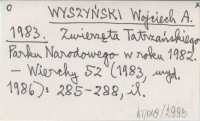 WYSZYŃSKI Wojciech A.
1983. Zwierzęta Tatrzańskiego
Parku Narodowego w roku 1982.
– Wierchy 52 (1983, wyd.
1986): 285-288, il.